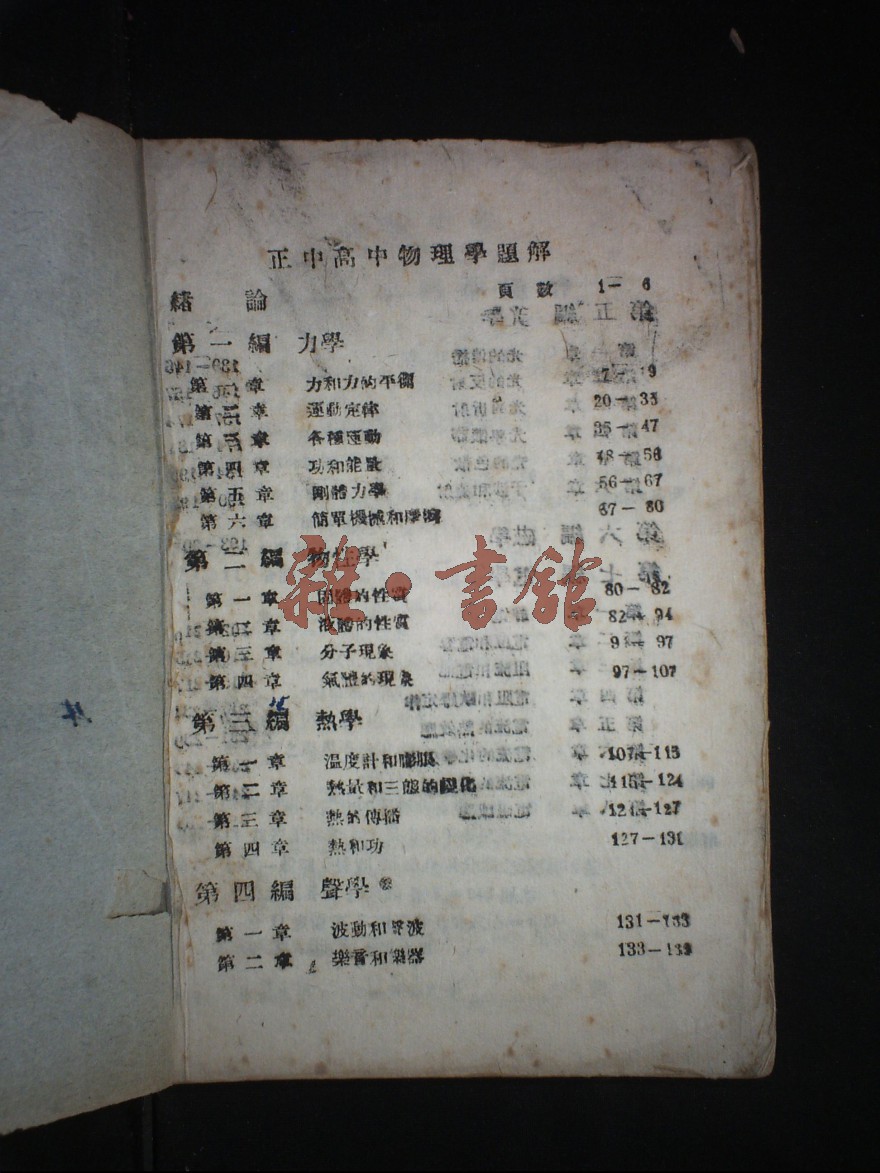 正中高中物理學題解
頁數 1— 6
緒 論
第一編 力學
第一章 力和力的平衡 7—19
第二章 運動定律 20—35
第三章 各種運動 35—47
第四章 功和能量 48—56
第五章 剛體力學 56—67
第六章 簡單機械和摩擦 67—80
第二編 物性學
第一章 固體的性質 80—82
第二章 液體的性質 82—94
第三章 分子現象 9 —97
第四章 氣體的現象 97—107
第三編 熱學
第一章 溫度計和膨脹 107—115
第二章 熱量和三態的變化 115—124
第三章 熱的傳播 124—127
第四章 熱和功 127—131
第四編 聲學
第一章 波動和聲波 131—133
第二章 樂音和樂器 133—139
雜·書館